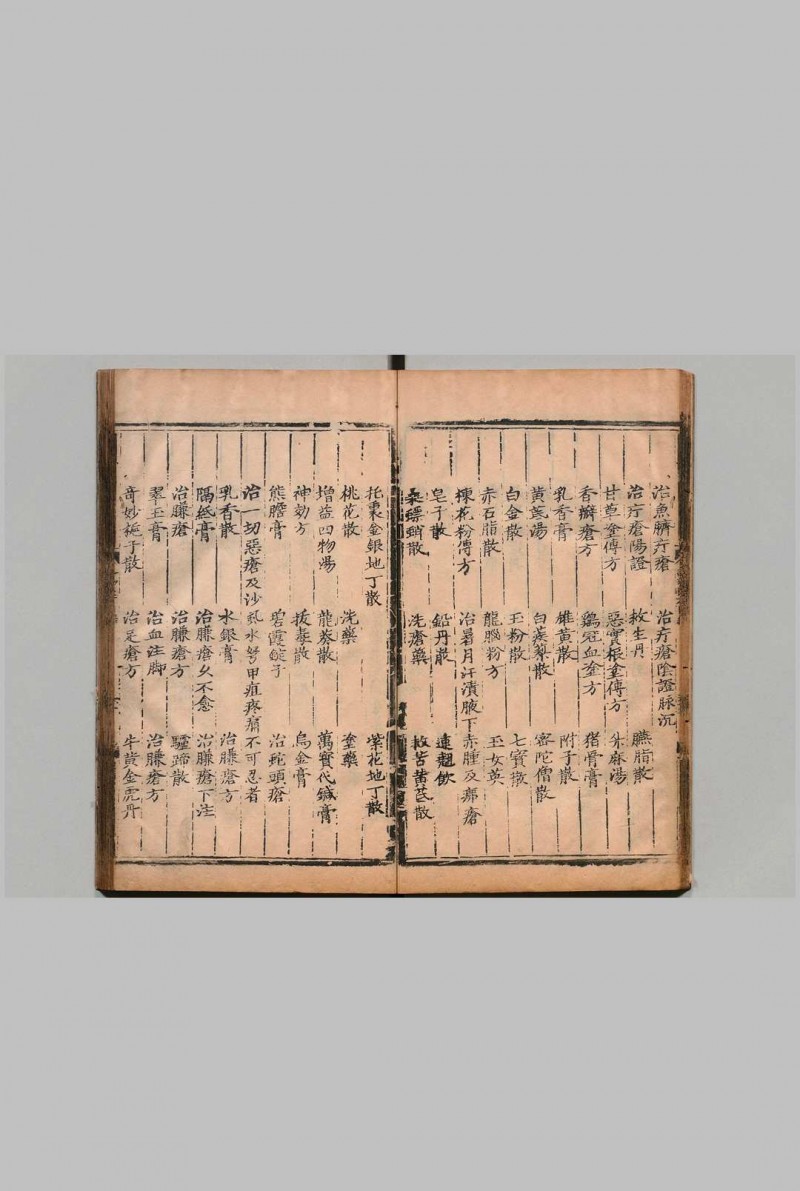 治魚臍疔瘡　治疔瘡陰證脉沉
治疔瘡陽證　救生丹　臙脂散
甘草塗傅方　惡實根塗傅方　升麻湯
香瓣瘡方　鷄冠血塗方　猪骨膏
乳香膏　雄黄散　附子散
黄芪湯　白蒺藜散　密陀僧散
白金散　玉粉散　七寶散
赤石脂散　龍腦粉方　玉女英
楝花粉傅方　治暑月汗漬腋下赤腫及瘡
皂子散　鉛丹散　連翹飲
桑螵蛸散　洗瘡藥　散苦黄芪散
托裏金銀地丁散　紫花地丁散
桃花散　洗藥　塗藥
增益四物湯　龍葵散　萬寶代鍼膏
神効方　拔毒散　烏金膏
熊膽膏　碧霞錠子　治蛇頭瘡
治一切惡瘡及沙虱水弩甲疽疼痛不可忍者
乳香散　水銀膏　治臁瘡方
隔紙膏　治臁瘡久不愈　治臁瘡下注
治臁瘡　治臁瘡方　驢蹄散
翠玉膏　治血注脚　治臁瘡方
奇妙梔子散　治足瘡方　牛黄金虎丹